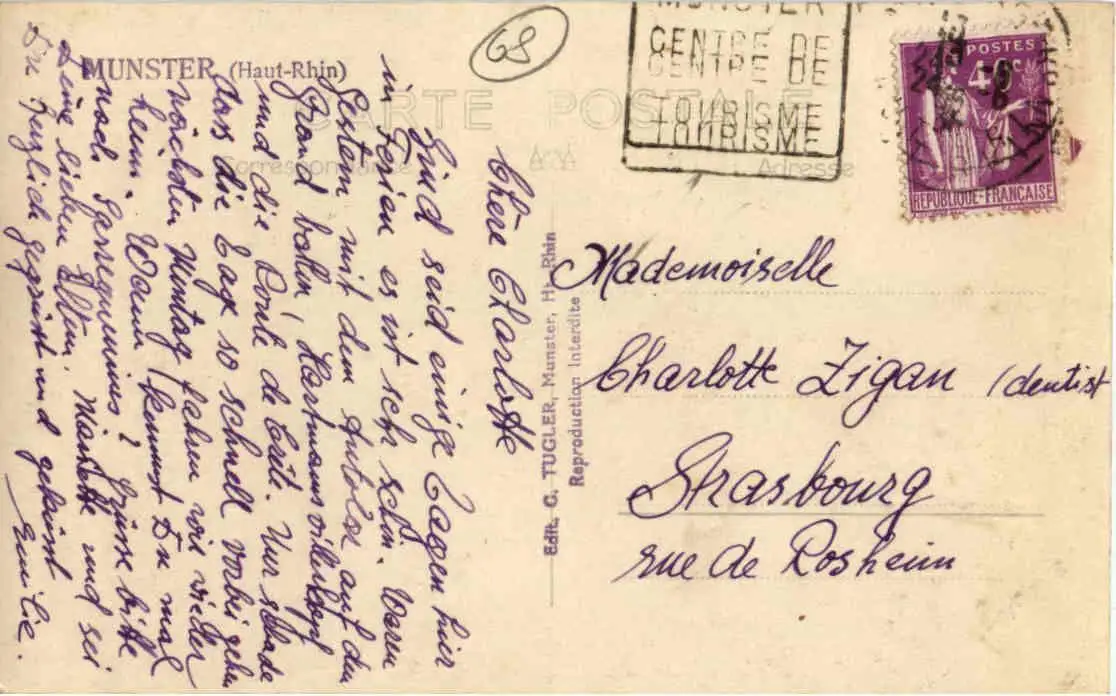 MUNSTER (Haut-Rhin)
CARTE POSTALE
Correspondance
Adresse
68
MUNSTER
CENTRE DE
CENTRE DE
TOURISME
TOURISME
POSTES
40c
REPUBLIQUE-FRANÇAISE
Chère Charlotte
Sind seid einige Tagen hier
in Ferien es ist sehr schön. Waren
Gestern mit dem Autokar auf dem
Grand balon, Hartmannsvillerkopf
und die Route de Crête. Nur schade
dass die Tage so schnell vorbei gehn
nächsten Montag fahren wir wieder
heim. Wann kommst Du mal
noch Sarreguemines? Grüsse bitte
Deine lieben Eltern. und sei
Du herzlich gegrüsst und geküsst
Emilie.
Edit. C. TUGLER, Munster, Ht-Rhin
Reproduction Interdite
Mademoiselle
Charlotte Zigan (dentist
Strasbourg
rue de Rosheim